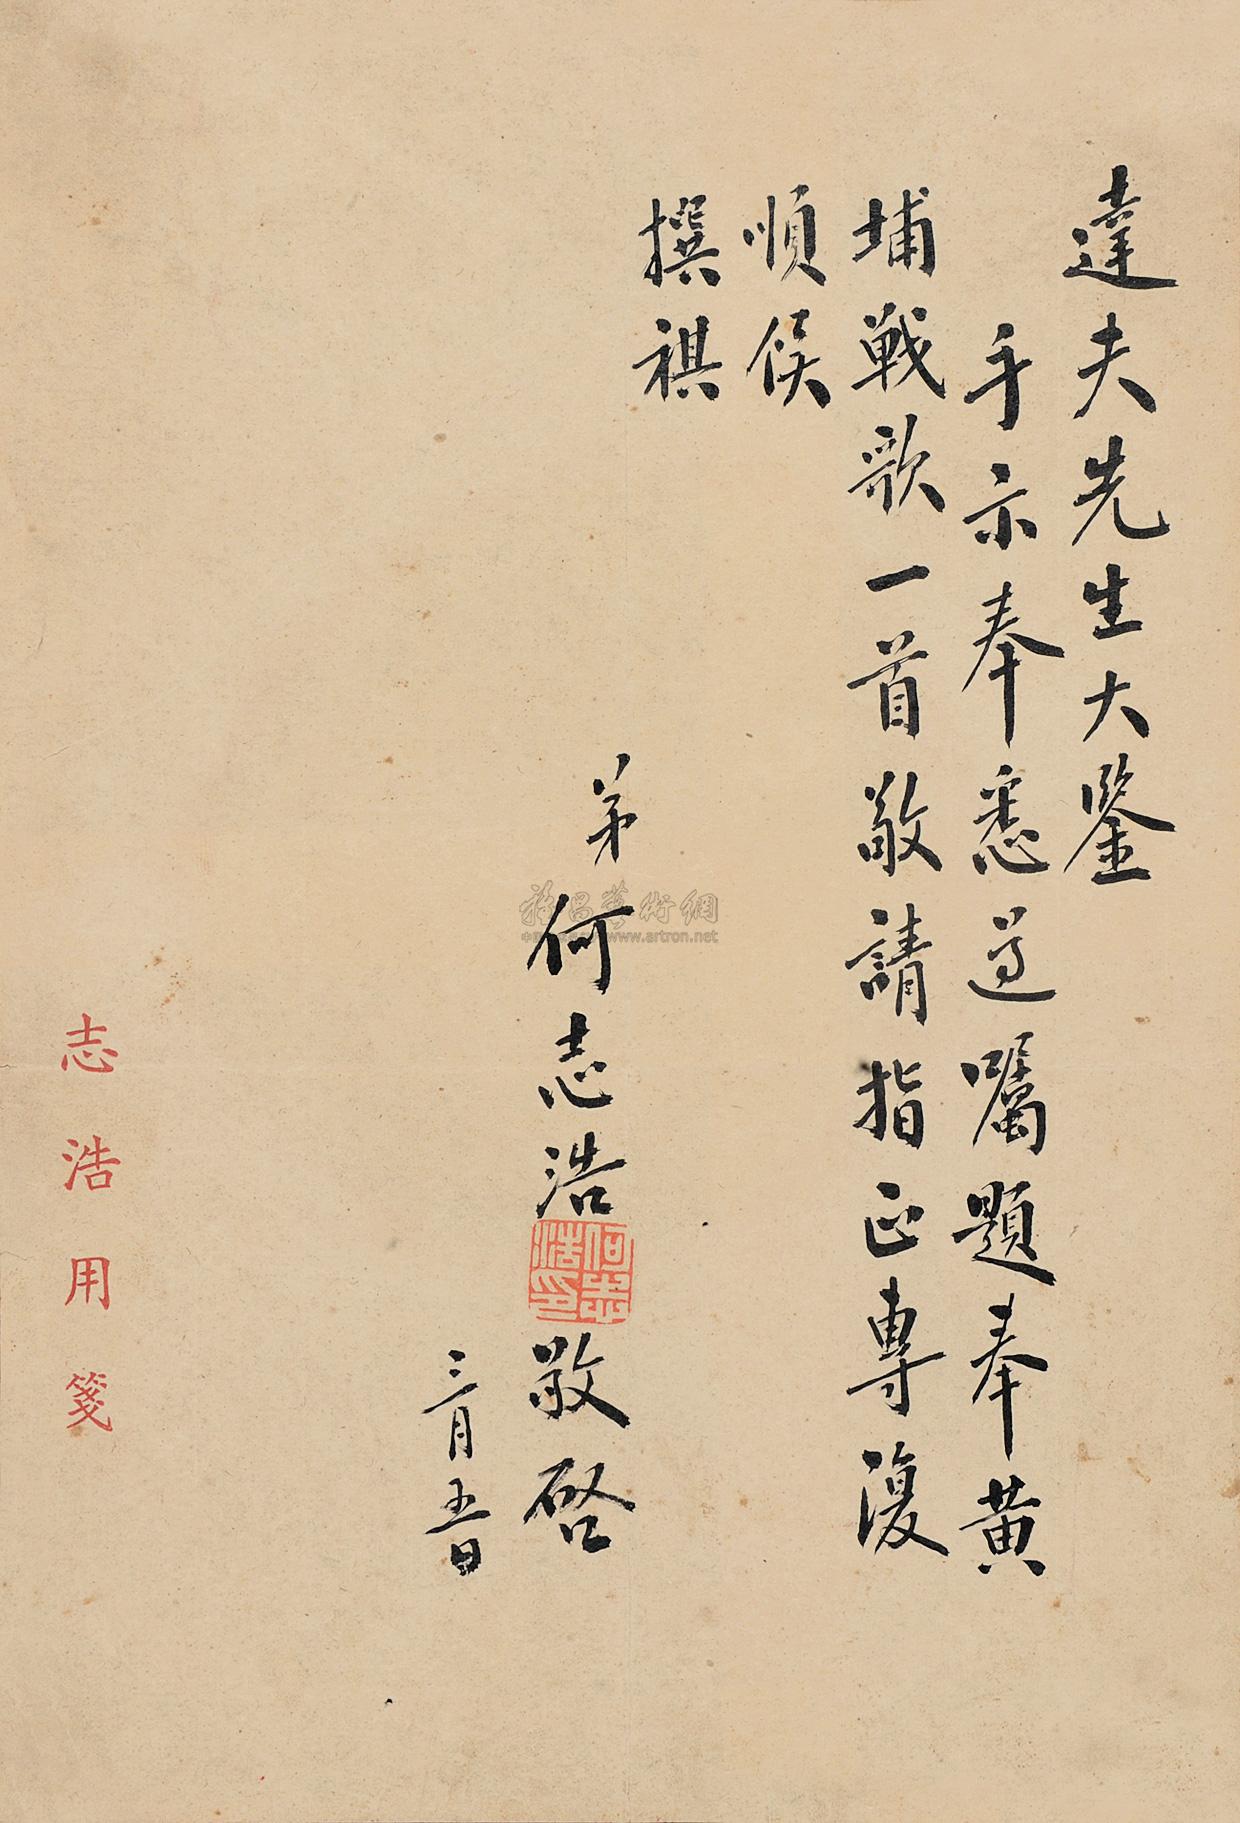 達夫先生大鑒
手示奉悉遵囑題奉黄
埔戰歌一首敬請指正專復
順侯
撰祺
弟何志浩敬啓
何志浩印
三月五日
志浩用箋
www.artron.net